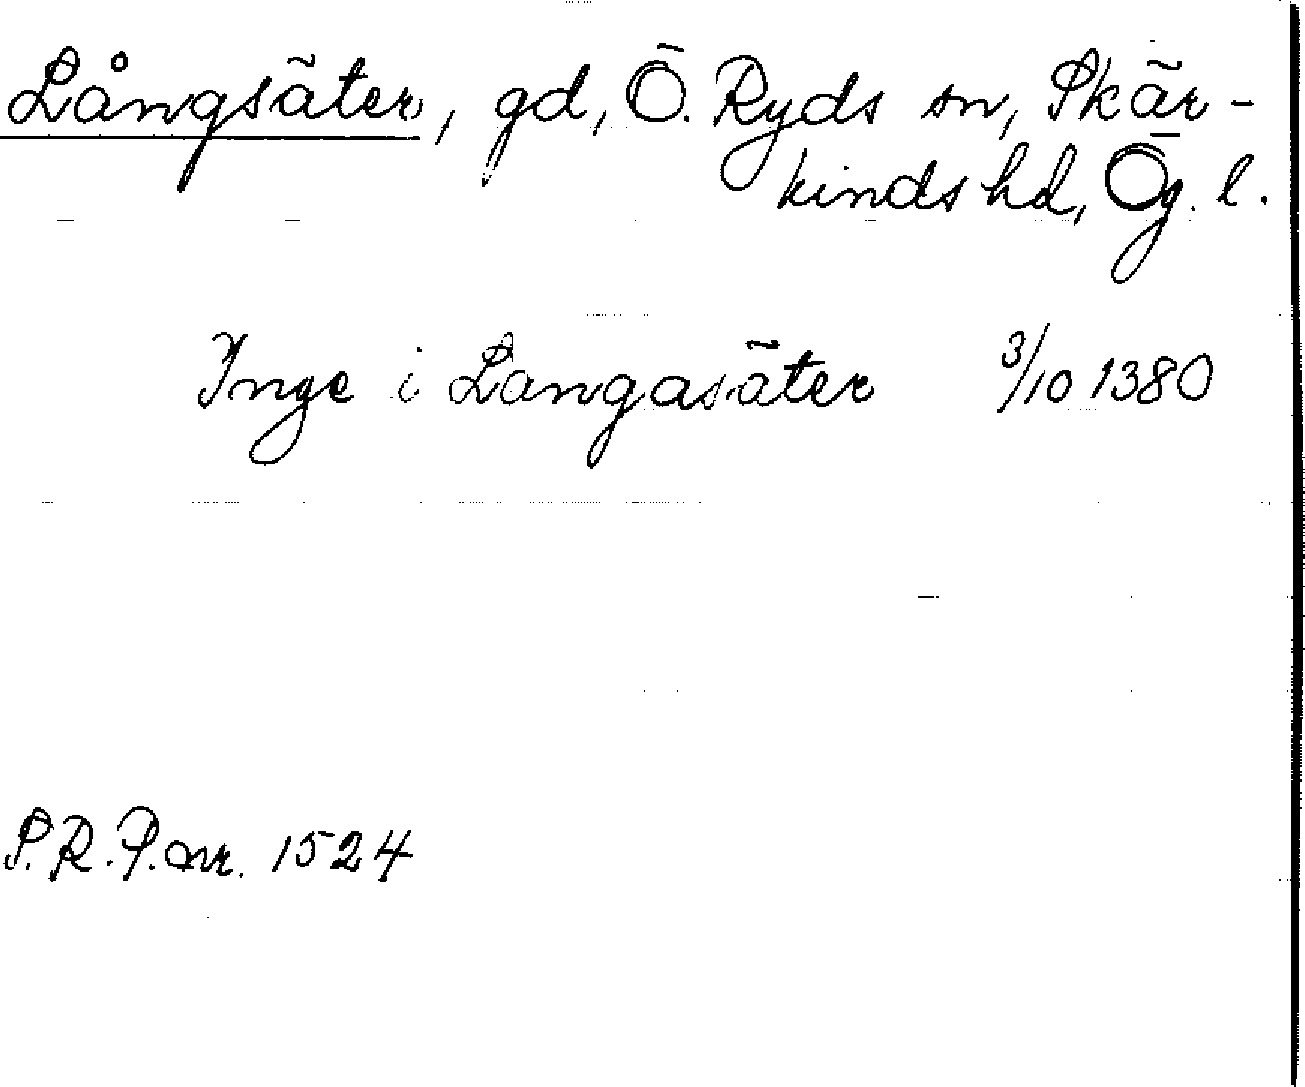 Långsäter, gd, Ö. Ryds sn, Skär-
kinds hd, Ög. l.
Inge i Langasäter 3/10 1380
S.R.P. nr. 1524